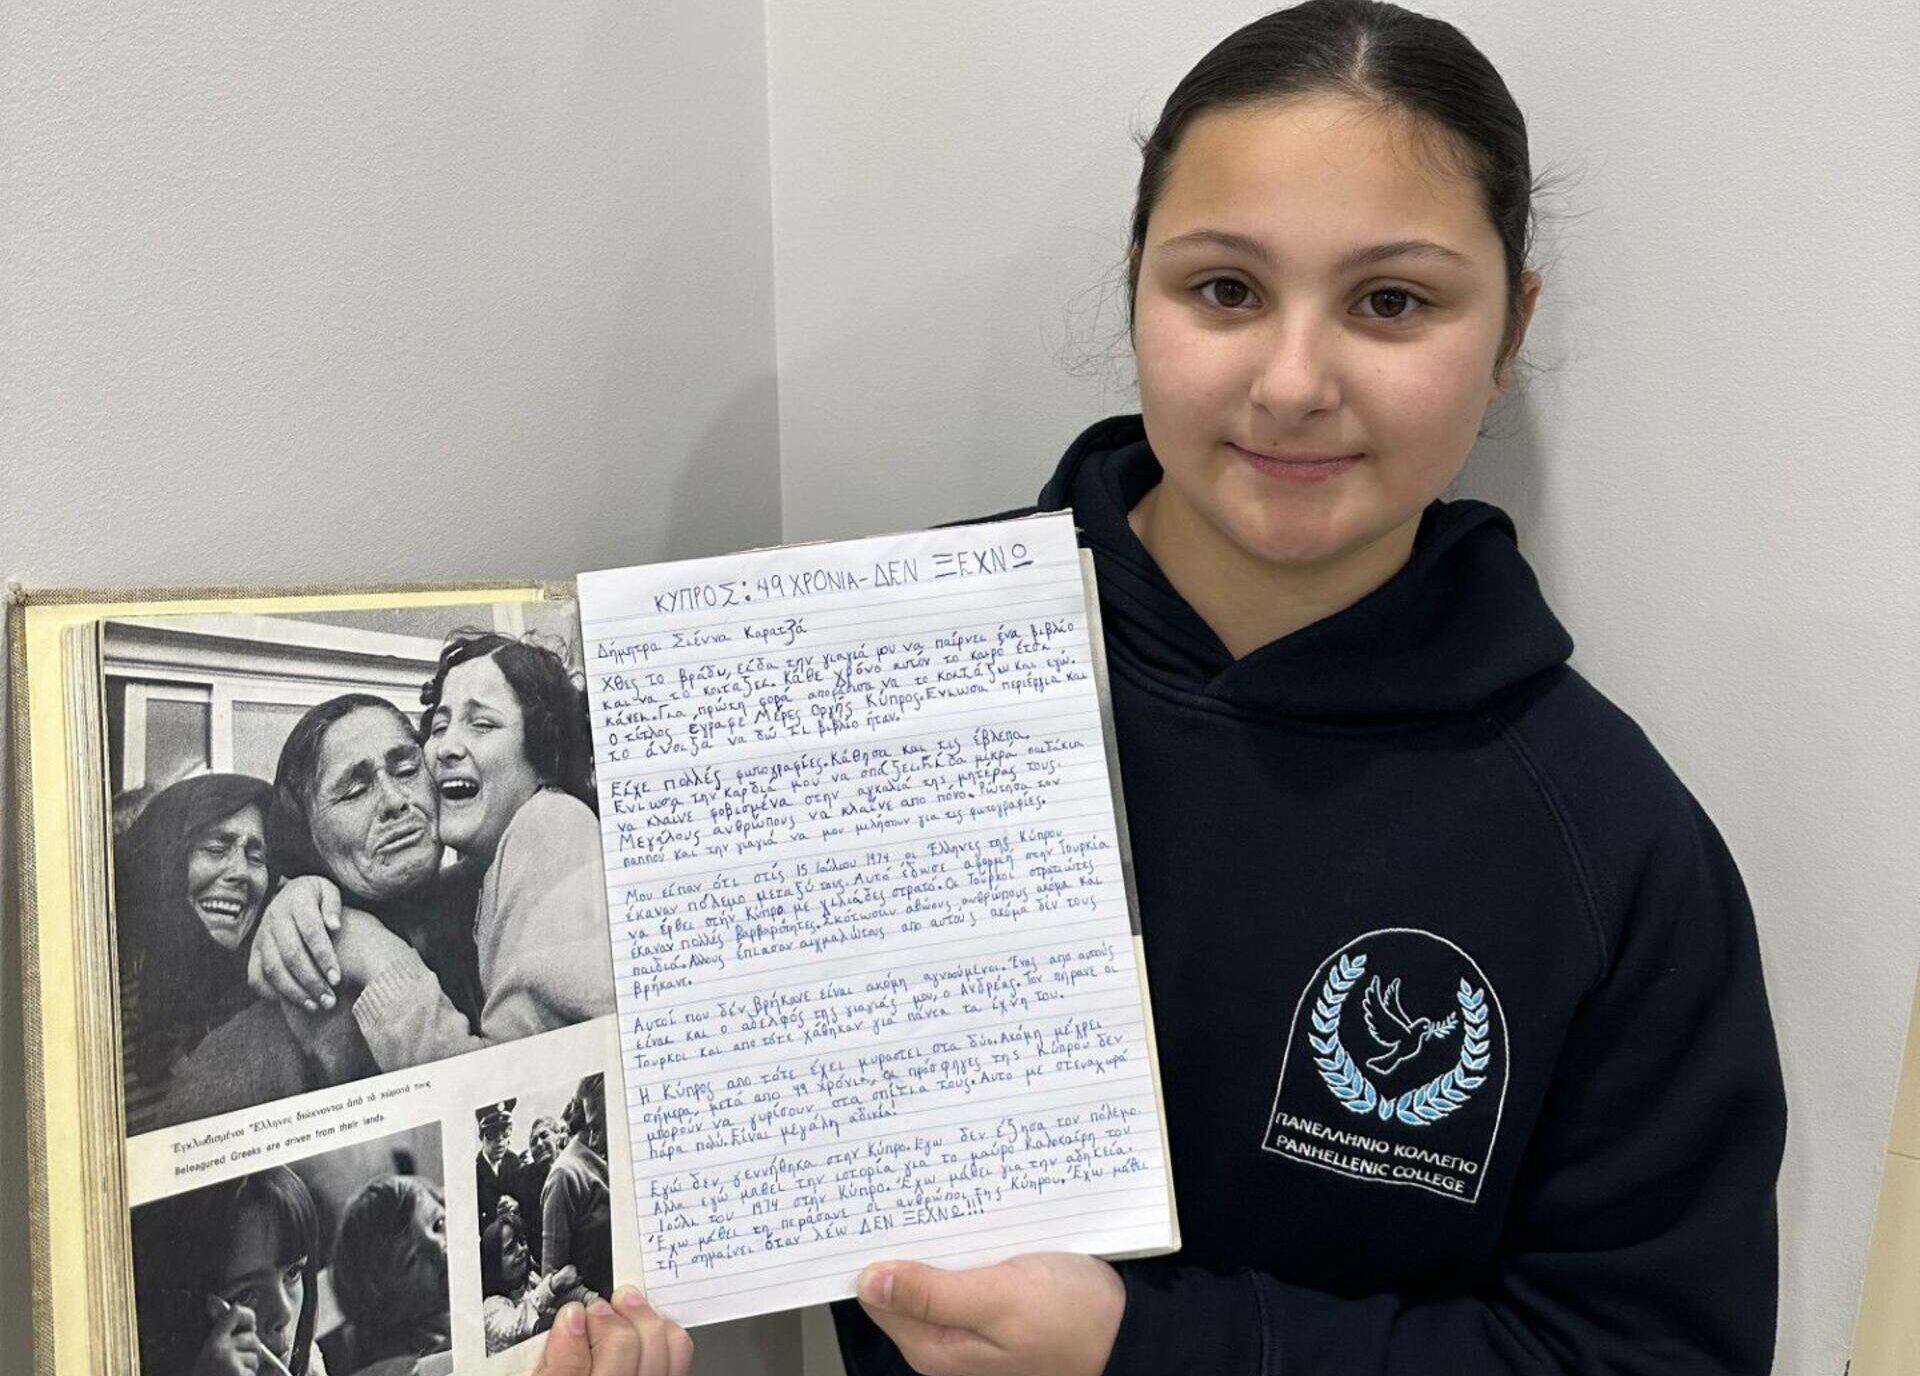 ΚΥΠΡΟΣ: 49 ΧΡΟΝΙΑ - ΔΕΝ ΞΕΧΝΩ
Δήμητρα Σιέννα Καρατζά
Χθες το βράδυ, είδα την γιαγιά μου να παίρνει ένα βιβλίο
και να το κοιτάζει. Κάθε χρόνο αυτόν το καιρό έτσι
κάνει. Για πρώτη φορά αποφάσισα να το κοιτάξω και εγώ.
Ο τίτλος έγραφε Μέρες Οργής Κύπρος. Ένιωσα περιέργια και
το άνοιξα να δώ τι βιβλίο ήταν.
Είχε πολλές φωτογραφίες. Κάθησα και τις έβλεπα.
Ένιωσα την καρδιά μου να σπάζει. Είδα μικρά παιδάκια
να κλαίνε φοβισμένα στην αγκαλιά της μητέρας τους.
Μεγάλους ανθρώπους να κλαίνε απο πόνο. Ρώτησα τον
παππού και την γιαγιά να μου μιλήσουν για τις φωτογραφίες.
Μου είπαν ότι στίς 15 Ιούλιου 1974 οι Έλληνες της Κύπρου
έκαναν πόλεμο μεταξύ τους. Αυτό έδωσε αφορμή στην Τουρκία
να έρθει στήν Κύπρο με χιλιάδες στρατό. Οι Τούρκοι στρατιώτες
έκαναν πολλές βαρβαρότητες. Σκότωσαν αθώους ανθρώπους ακόμα και
παιδιά. Άλλους έπιασαν αιχμαλώτους απο αυτούς ακόμα δέν τους
βρήκανε.
Αυτοί που δέν βρήκανε είναι ακόμη αγνοούμενοι. Ένας απο αυτούς
είναι και ο αδελφός της γιαγιάς μου, ο Ανδρέας. Τον πήρανε οι
Τουρκοι και απο τότε χάθηκαν για πάντα τα ίχνη του.
Η Κύπρος απο τότε έχει μυραστεί στα δύο. Ακόμη μέχρι
σήμερα, μετά απο 49 χρόνια, οι πρόσφηγες της Κύπρου δεν
μπορούν να γυρίσουν στα σπίτια τους. Αυτο με στεναχωρά
πάρα πολύ. Είναι μεγάλη αδικία!
Εγώ δεν γεννήθηκα στην Κύπρο. Εγω δεν έζησα τον πόλεμο.
Αλλα εγώ μαθει την ιστορία για το μαύρο Καλοκαίρη του
Ιούλη του 1974 στην Κύπρο. Έχω μάθει για την αδηκεία.
Έχω μάθει τη περάσανε οι ανθρώποι της Κύπρου. Έχω μάθει
τη σημαίνει όταν λέω ΔΕΝ ΞΕΧΝΩ!!!
Ἐγκλωβισμένοι Ἕλληνες διώχνονται ἀπὸ τὰ χώματά τους
Beleagured Greeks are driven from their lands
ΠΑΝΕΛΛΗΝΙΟ ΚΟΛΛΕΓΙΟ
PANHELLENIC COLLEGE